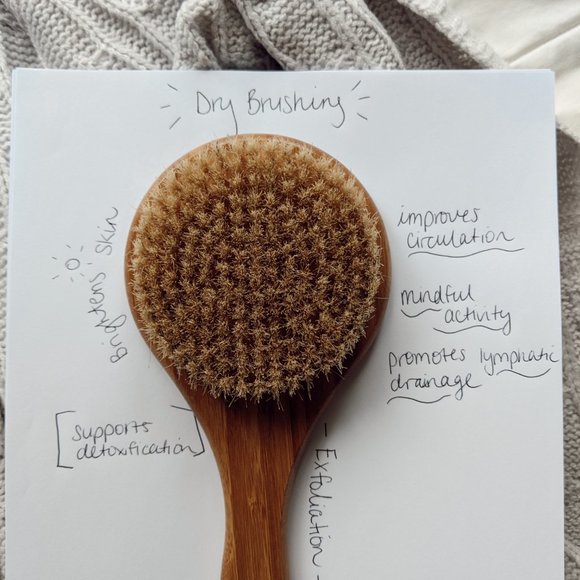 Dry Brushing
improves
circulation
mindful
activity
promotes lymphatic
drainage
Brightens Skin
[supports
detoxification]
- Exfoliation -